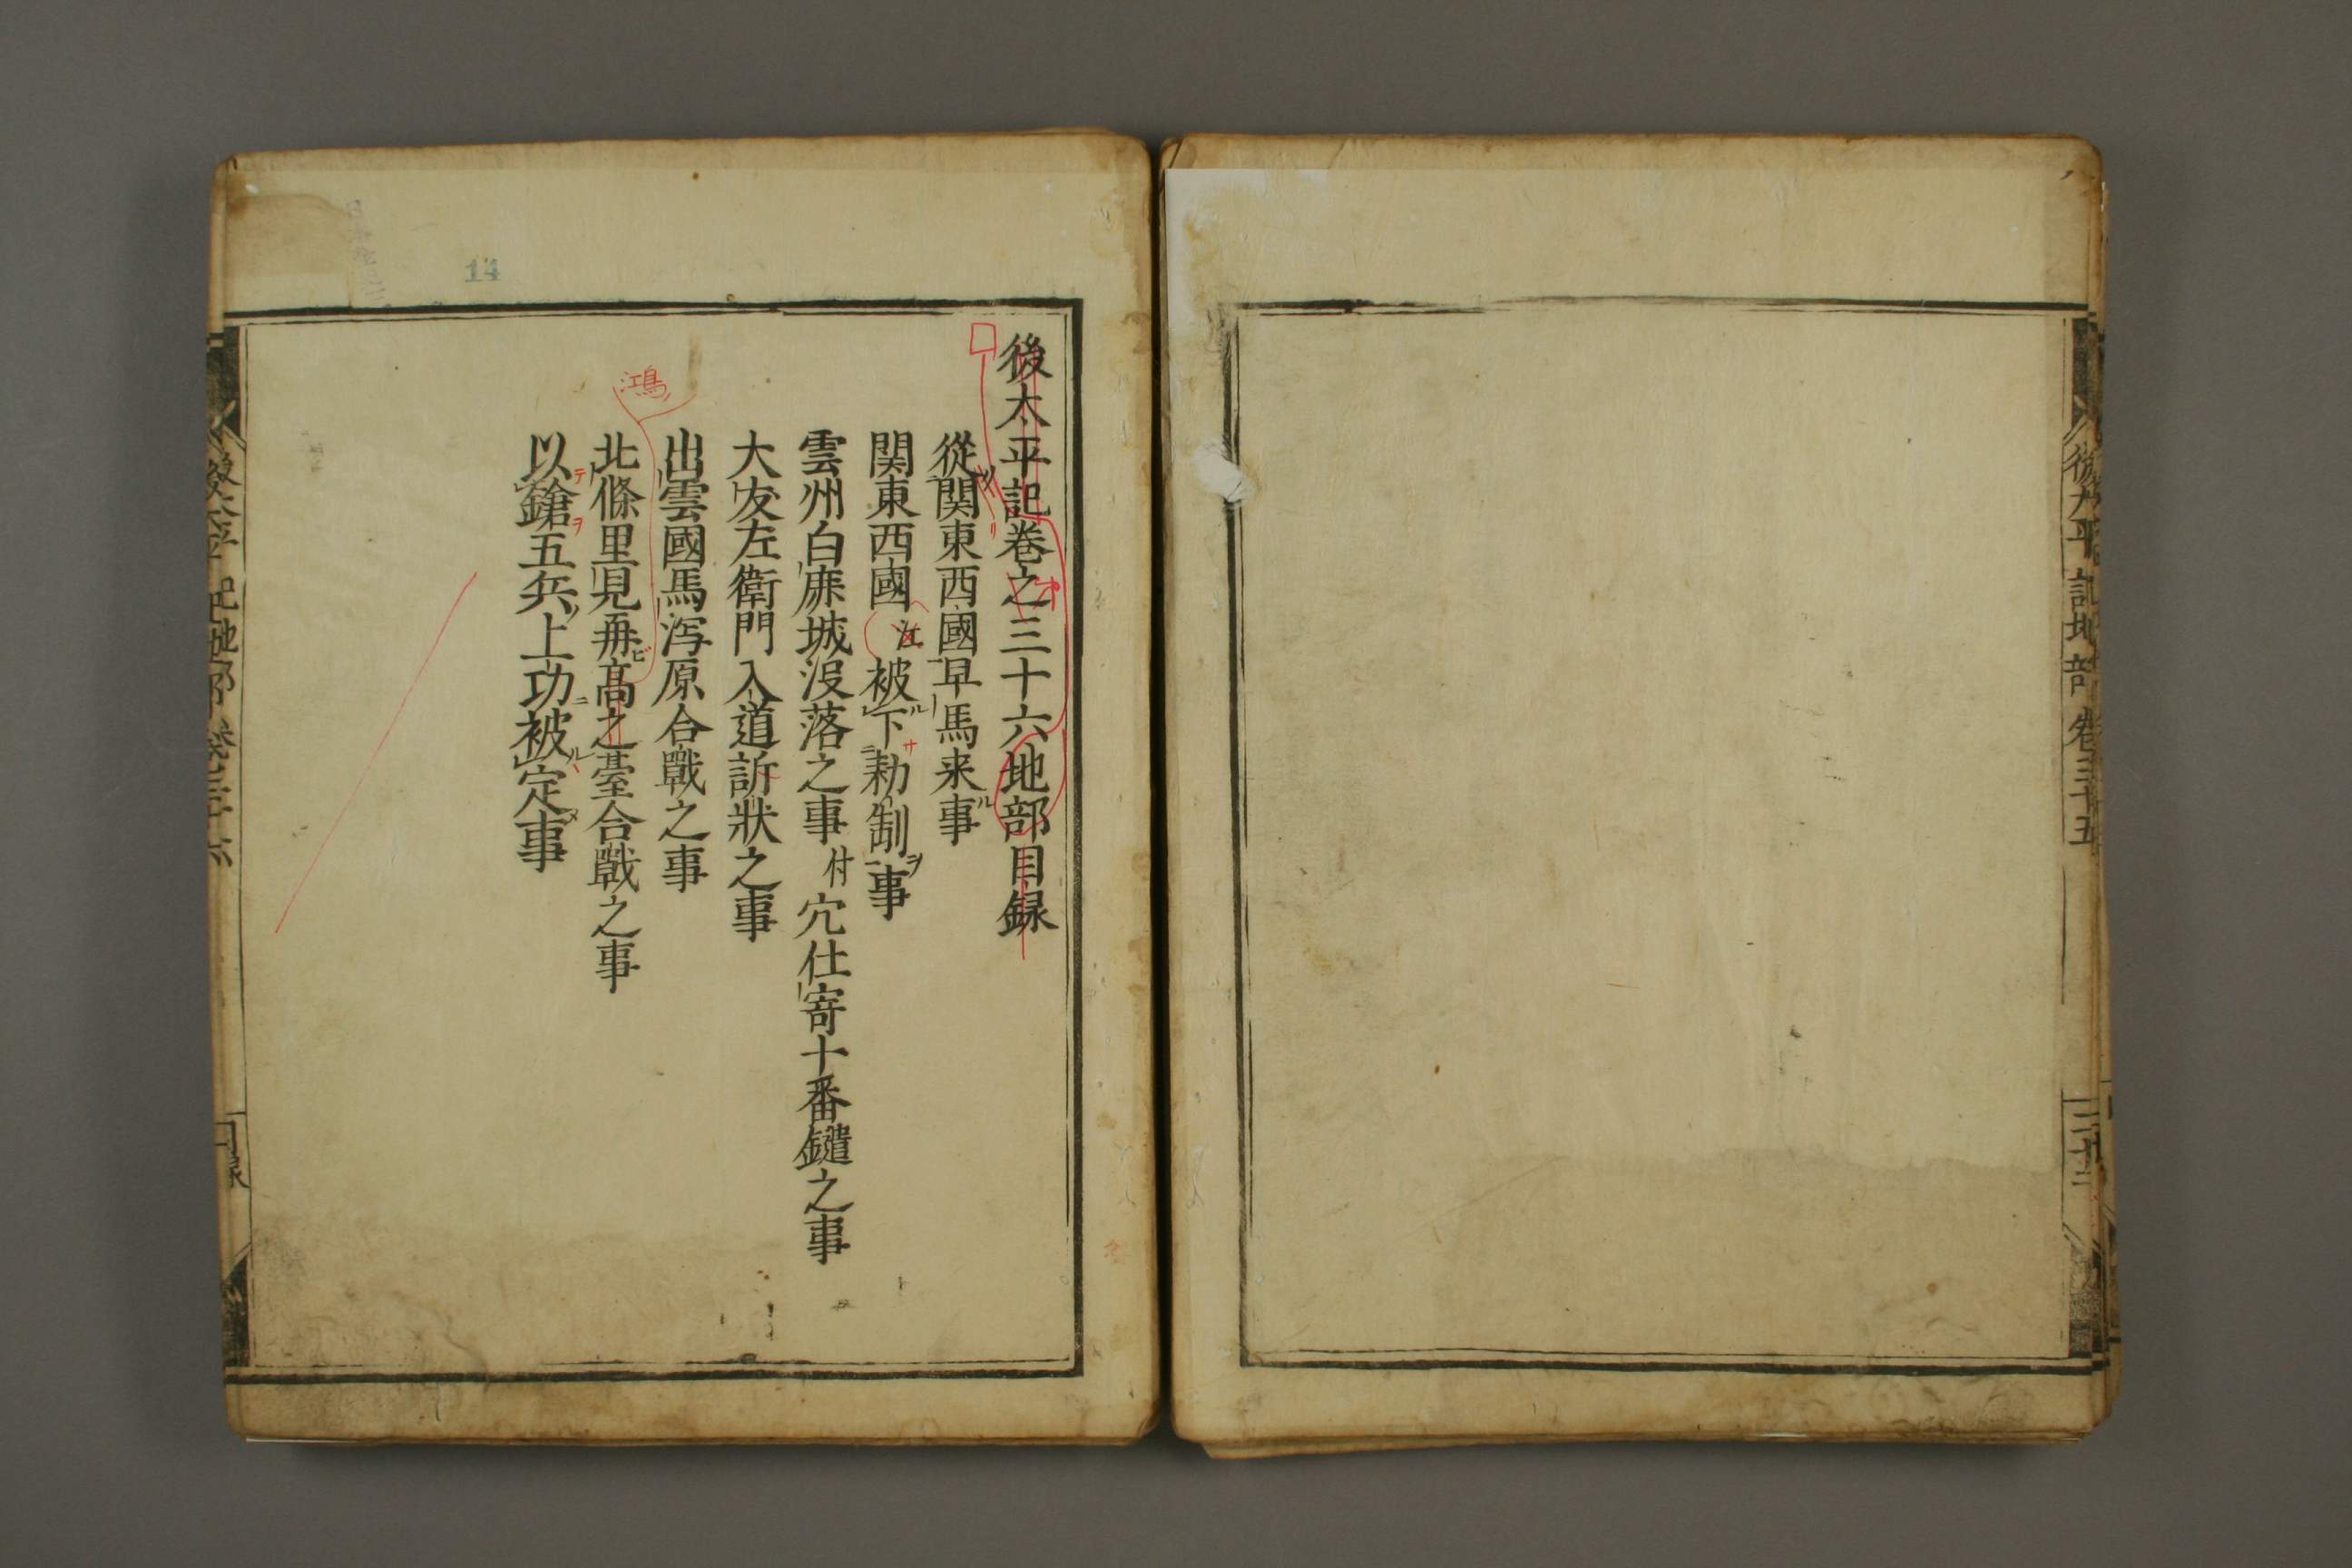 後太平記地部 卷三十五
二十二
後太平記卷之三十六地部目録
從関東西國早馬来事
関東西國江被下勅制事
雲州白鹿城没落之事付穴仕寄十番鑓之事
大友左衛門入道訴狀之事
出雲國馬泻原合戰之事
北條里見再高之臺合戰之事
以鎗五兵上功被定事
鴻
14
後太平記地部 卷三十六
目録